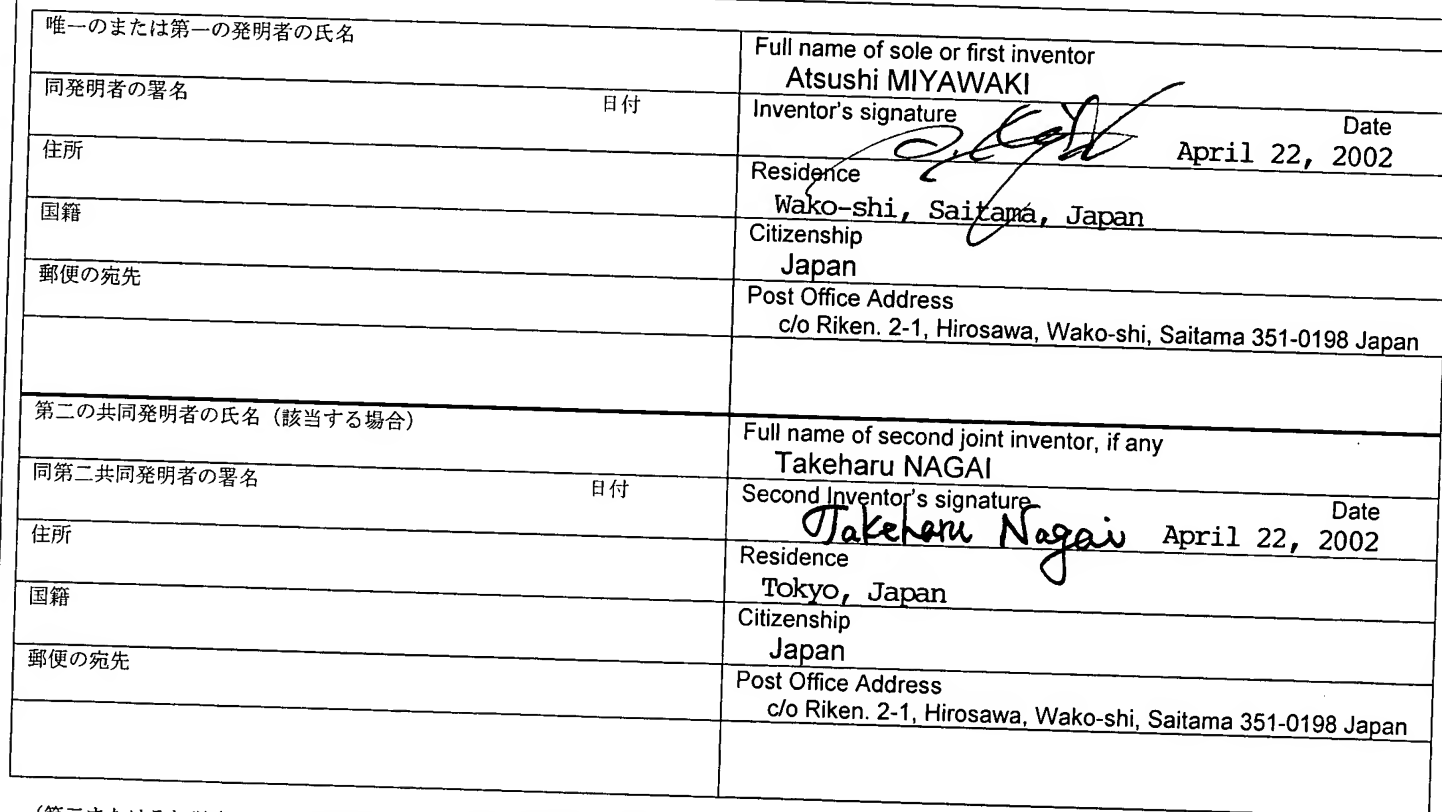 唯一のまたは第一の発明者の氏名
Full name of sole or first inventor
Atsushi MIYAWAKI
同発明者の署名 日付
Inventor's signature Date
April 22, 2002
住所
Residence
Wako-shi, Saitama, Japan
国籍
Citizenship
Japan
郵便の宛先
Post Office Address
c/o Riken. 2-1, Hirosawa, Wako-shi, Saitama 351-0198 Japan
第二の共同発明者の氏名（該当する場合）
Full name of second joint inventor, if any
Takeharu NAGAI
同第二共同発明者の署名 日付
Second Inventor's signature Date
Takeharu Nagai April 22, 2002
住所
Residence
Tokyo, Japan
国籍
Citizenship
Japan
郵便の宛先
Post Office Address
c/o Riken. 2-1, Hirosawa, Wako-shi, Saitama 351-0198 Japan